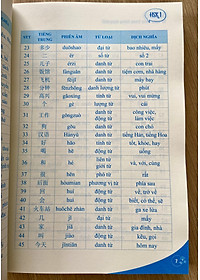 HSK1
STT TIẾNG TRUNG PHIÊN ÂM TỪ LOẠI DỊCH NGHĨA
23 多少 duōshao đại từ bao nhiêu, mấy
24 二 èr số từ số 2
25 儿子 érzi danh từ con trai
26 饭馆 fànguǎn danh từ tiệm cơm, nhà hàng
27 飞机 fēijī danh từ máy bay
28 分钟 fēnzhōng danh từ phút
29 高兴 gāoxìng tính từ vui, vui mừng
30 个 gè lượng từ cái
31 工作 gōngzuò danh từ, động từ công việc, làm việc
32 汉语 Hànyǔ danh từ tiếng Hán, tiếng Hoa
34 好 hǎo tính từ tốt, khỏe, hay
35 喝 hē động từ uống
36 和 hé liên từ, giới từ và, với, cùng
37 很 hěn phó từ rất
38 后面 hòumian phương vị từ phía sau
39 回 huí động từ về, trở về
40 会 huì động từ biết, có thể, sẽ
41 火车站 huǒchē zhàn danh từ ga xe lửa
42 几 jǐ đại từ mấy
43 家 jiā danh từ gia đình, nhà
44 叫 jiào động từ kêu, gọi
45 今天 jīntiān danh từ hôm nay